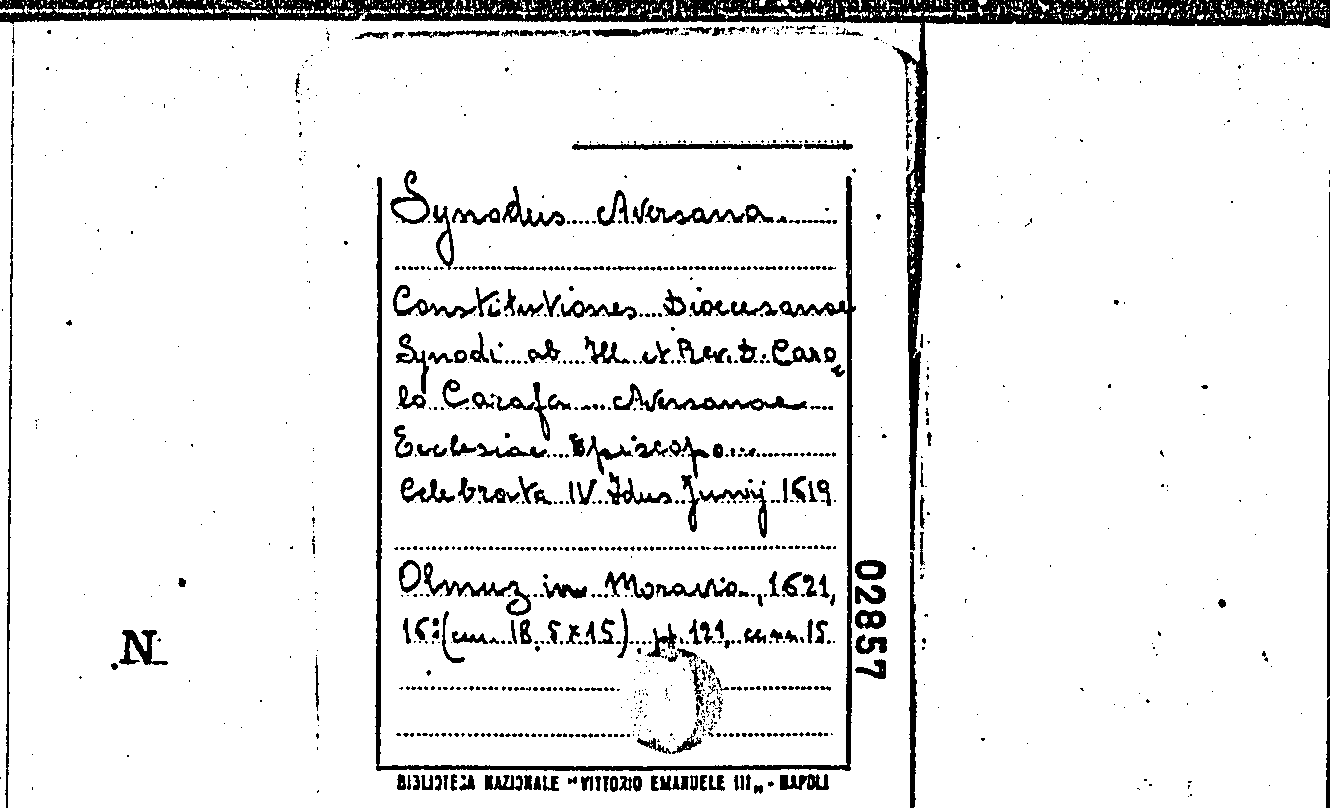 Synodus Aversana
Constitutiones Dioecesanae
Synodi ab Ill. et Rev. D. Caro
lo Carafa Aversanae
Ecclesiae Episcopo
Celebrata IV Idus Junij 1619
Olmuz in Moravia, 1621,
16° (cm. 18,5x15), pp. 121, cc.nn. 15.
02857
N
BIBLIOTECA NAZIONALE "VITTORIO EMANUELE III„ - NAPOLI